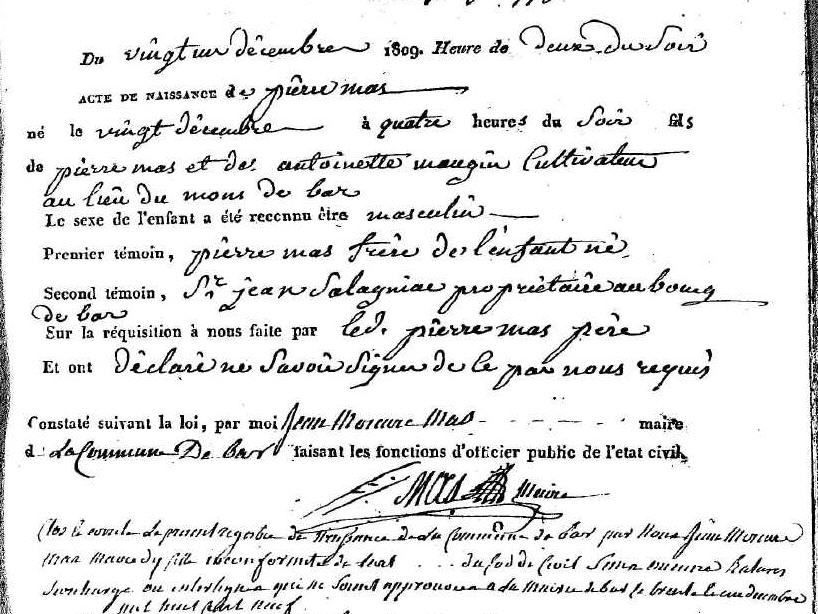 Du vingt un décembre 1809. Heure de deux du soir
ACTE DE NAISSANCE de pierre mas
né le vingt décembre à quatre heures du soir fils
de pierre mas et de antoinette maugin Cultivateur
au lieu du mons de bar
Le sexe de l'enfant a été reconnu être masculin
Premier témoin, pierre mas frère de l'enfant né
Second témoin, Sr. jean Salagniac propriétaire au bourg
de bar
Sur la réquisition à nous faite par led. pierre mas père
Et ont déclaré ne savoir signer de ce par nous requis
Constaté suivant la loi, par moi Jean Mercure Mas maire
d La Commune De bar faisant les fonctions d'officier public de l'etat civil,
Mas Maire
Clos le present registre de Naissance de La Commune de bar par Nous Jean Mercure
Mas Maire conformité du Code Civil Sans aucune Ratures
Surcharge ou interligne qui ne Soint approuvée a La Mairie de bar Le trente et un decembre
mil huit cent neuf